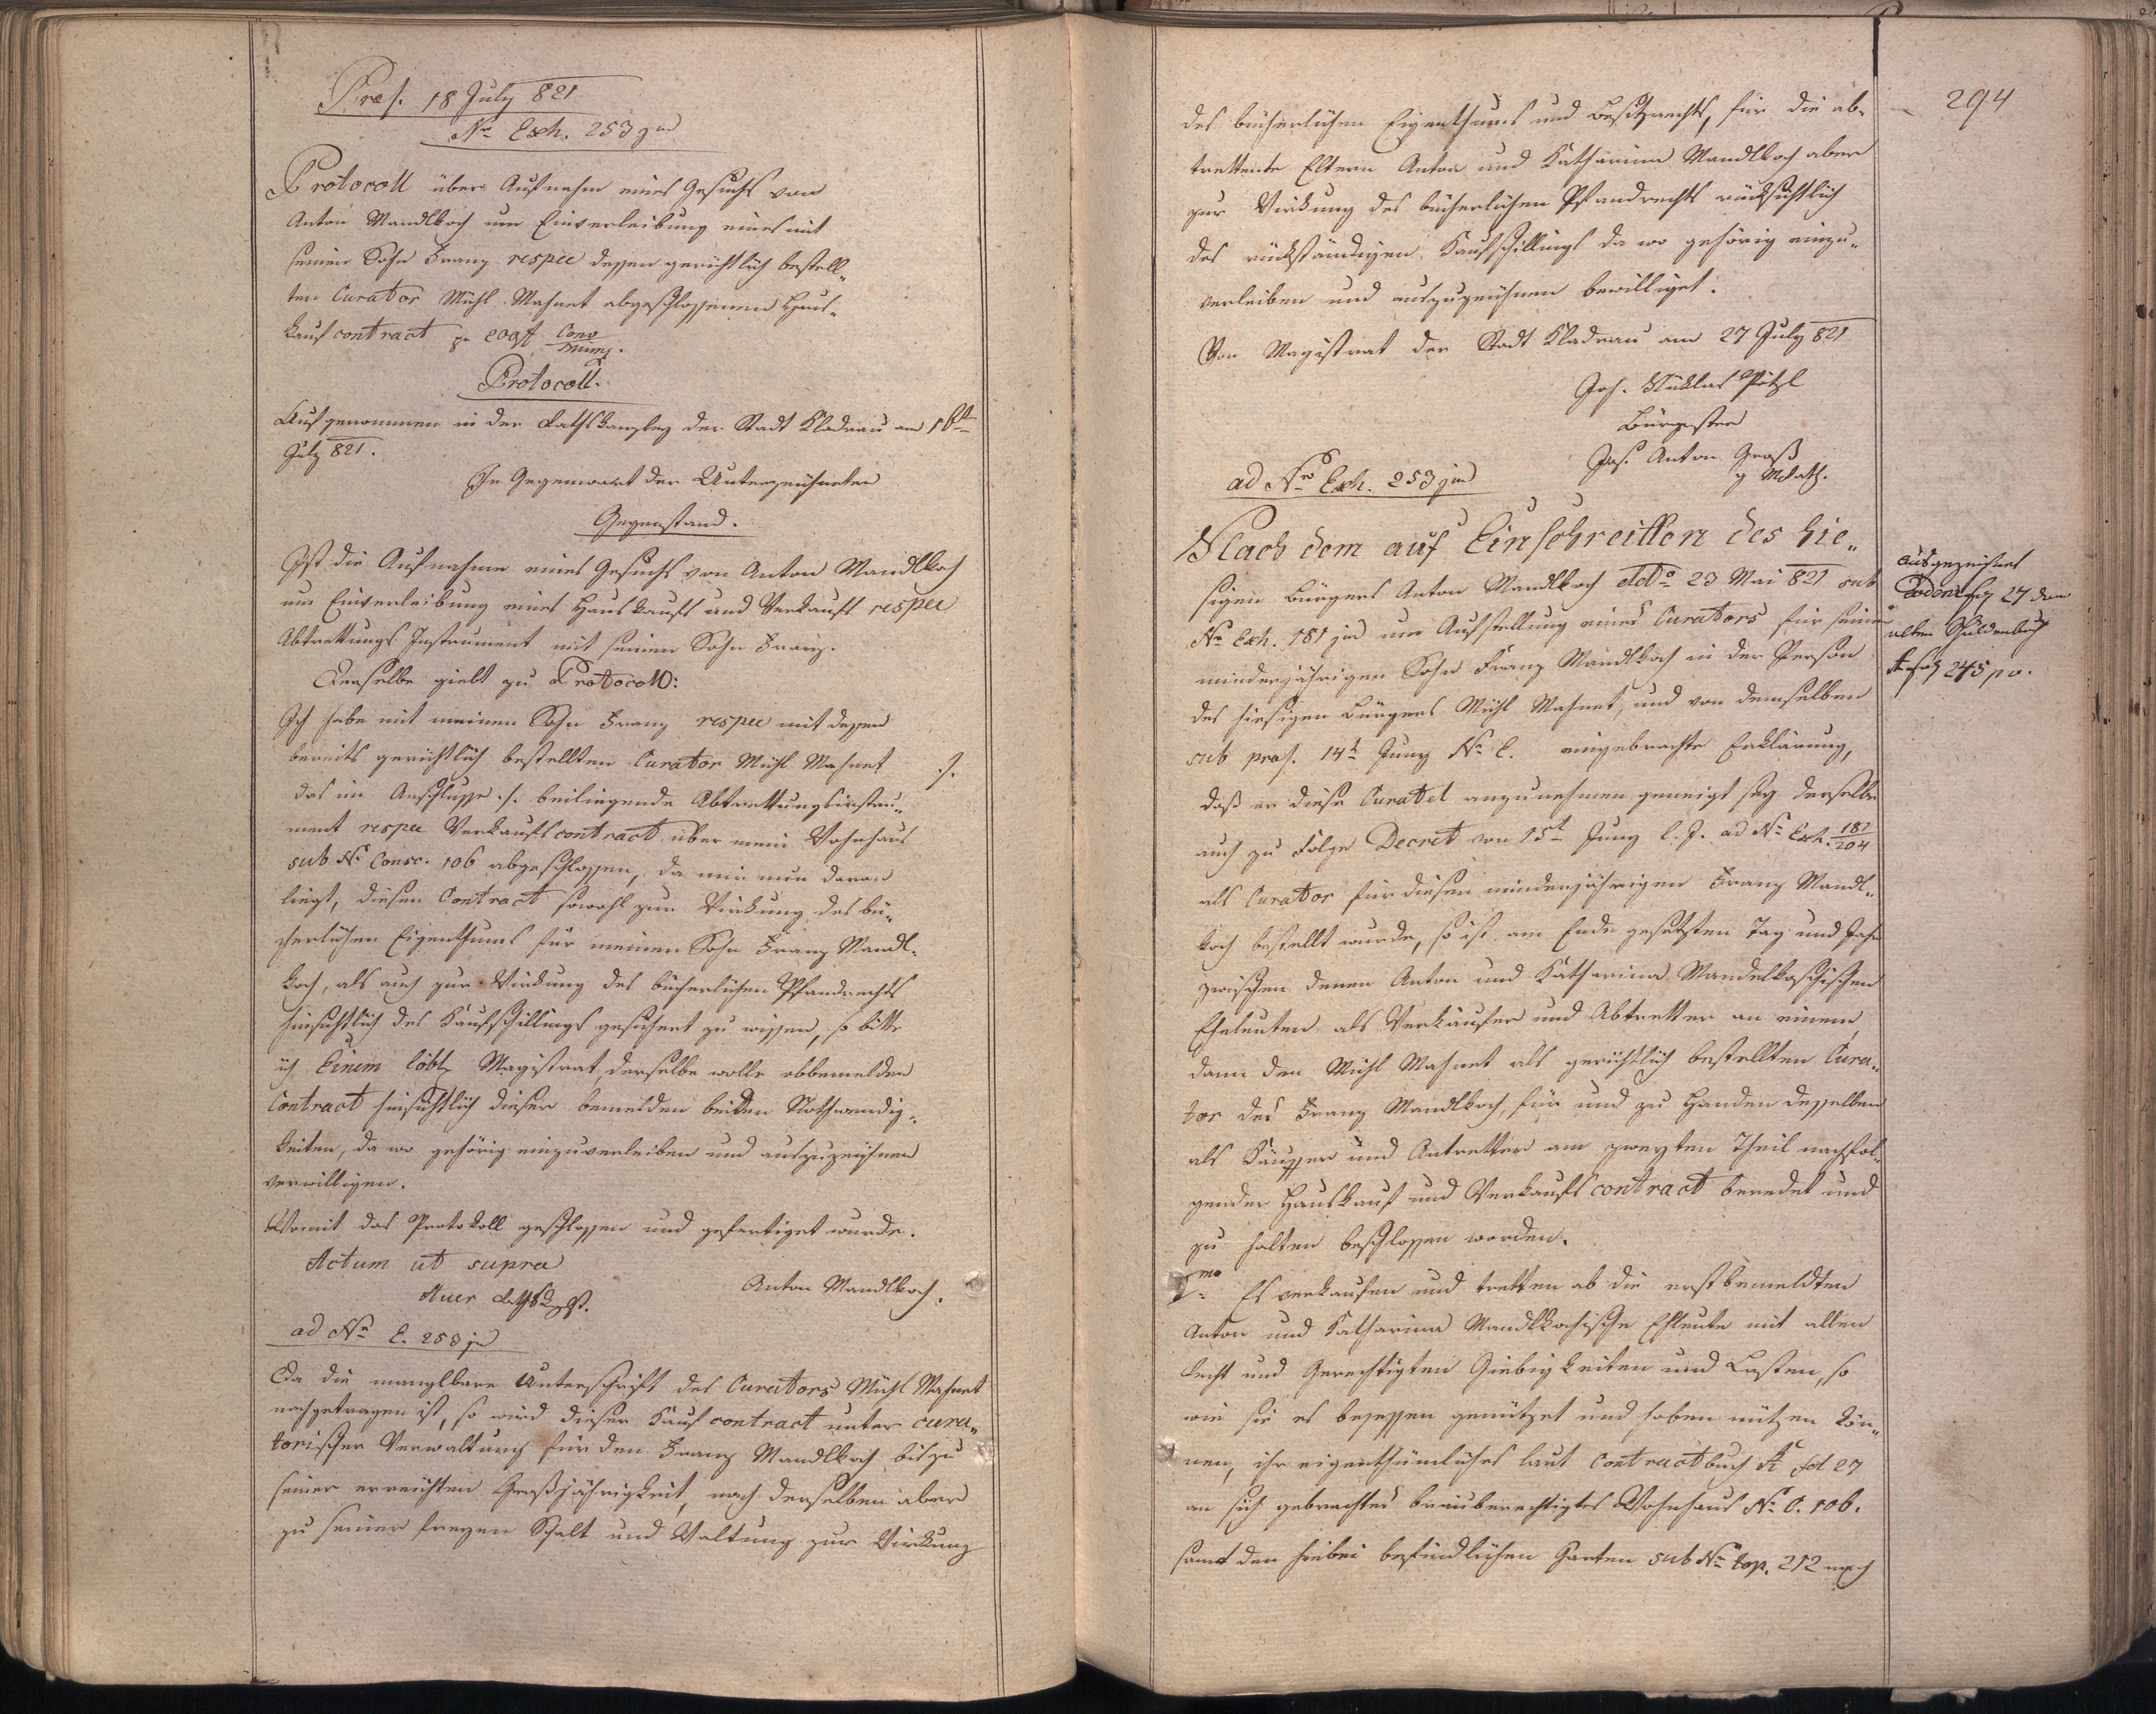 Præs. 18 July 821
Nro Exh. 253 jud
Protocoll über Aufnahm eines Gesuchs von
Anton Mandlkoch um Einverleibung eines mit
seinem Sohn Franz respee dessen gerichtlich bestell„
ten Curator Michl Mahnet abgeschlossenen Haus„
kaufcontract pr 200 f Conv Münz.
Protocoll.
Aufgenommen in der Rathskanzley der Stadt Kladrau am 18t
July 821.
In Gegenwart der Unterzeichneten
Gegenstand.
Ist die Aufnahme eines Gesuchs von Anton Mandlkoch
um Einverleibung eines Hauskaufs und Verkaufs respee
Abtrettungs Instrument mit seinem Sohn Franz.
Derselbe giebt zu Protocoll:
Ich habe mit meinem Sohn Franz respee mit dessen
bereits gerichtlich bestellten Curator Michl Mahnet ./.
das im Anschlusse ./. beiliegende Abtrettungsinstru„
ment respee Verkaufscontract über mein Wohnhaus
sub Nr Consc. 106 abgeschlossen, da mir nun daran
liegt, diesen Contract sowohl zur Wirkung des bü„
cherlichen Eigenthums für meinen Sohn Franz Mandl„
koch, als auch zur Wirkung des bücherlichen Pfandrechts
hinsichtlich des Kaufschillings gesichert zu wissen, so bitte
ich Einem löbl. Magistrat, derselbe wolle obbemelden
Contract hinsichtlich dieser bemelden beiden Nothwendig„
keiten, da wo gehörig einzuverleiben und auszuzeichnen
verwilligen.
Womit das Protokoll geschlossen und gefertiget wurde.
Actum ut supra
Anton Mandlkoch.
Auer
ad Nro E. 253 jud
Da die manglbare Unterschrift des Curators Michl Mahnet
nachgetragen ist, so wird dieser Kaufcontract unter cura„
torischer Verwaltung für den Franz Mandlkoch bis zu
seiner erreichten Großjährigkeit, nach derselben aber
zu seiner freyen Schalt und Waltung zur Wirkung
294
des bücherlichen Eigenthums und Besitzrechts, für die ab„
trettente Eltern Anton und Katharina Mandlkoch aber
zur Wirkung des bücherlichen Pfandrechts rücksichtlich
des rückständigen Kaufschillings da wo gehörig einzu„
verleiben und auszuzeichnen bewilliget.
Von Magistrat der Stadt Kladrau am 27 July 821
Joh. Niklas Pötzl
Bürgmster
Jos. Anton Groß
g Mrath.
ad Nro Exh. 253 jud
Nach dem auf Einschreitten des hie„
sigen Bürgers Anton Mandlkoch ddo 23 Mai 821 sub
Nr Exh. 181 jud um Aufstellung eines Curators für seinen
minderjährigen Sohn Franz Mandlkoch in der Person
des hiesigen Bürgers Michl Mahnet, und von demselben
sub præs. 14t Juny Nr E. eingebrachte Erklärung,
daß er diese Curatel anzunehmen geneigt sey derselbe
auch zu Folge Decret von 15t Juny l. J. ad Nr Exh. 181/204
als Curator für diesen minderjährigen Franz Mandl„
koch bestellt wurde, so ist am Ende gesetzten Tag und Jahr
zwischen denen Anton und Katharina Mandelkochischen
Eheleuten als Verkäufer und Abtretter an einem,
dann den Michl Mahnet als gerichtlich bestellten Cura„
tor des Franz Mandlkoch, für und zu Handen desselben
als Käufer und Antretter am zweyten Theil nachfol„
gender Hauskauf und Verkaufscontract beredet und
zu halten beschlossen worden.
1mo Es verkaufen und tretten ab die erstbemeldten
Anton und Katharina Mandlkochische Ehleute mit allen
Recht und Gerechtigten Giebigkeiten und Lasten, so
wie sie es besessen genützet und haben nützen kön„
nen, ihr eigenthümliches laut Contractbuch A fol 27
an sich gebrachtes bräuberechtigtes Wohnhaus Nr C. 106.
samt den hiebei befindlichen Garten sub Nr top. 212 nach
ausgezeichnet
27 dem
alten Schuldenbuch
A fol 245 p v.